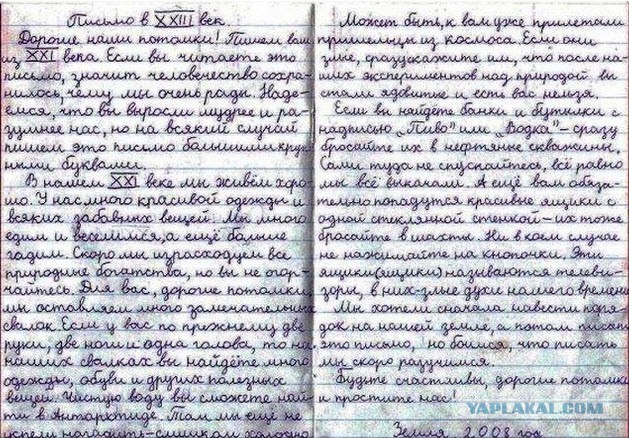 Письмо в XXIII век.
Дорогие наши потомки! Пишем вам
из XXI века. Если вы читаете это
письмо, значит человечество сохра-
нилось, чему мы очень рады. Наде-
емся, что вы выросли мудрее и ра-
зумнее нас, но на всякий случай
пишем это письмо большими круп-
ными буквами.
В нашем XXI веке мы живём хоро-
шо. У нас много красивой одежды и
всяких забавных вещей. Мы много
едим и веселимся, а ещё больше
гадим. Скоро мы израсходуем все
природные богатства, но вы не огор-
чайтесь. Для вас, дорогие потомки,
мы оставляем много замечательных
свалок. Если у вас по прежнему две
руки, две ноги и одна голова, то на
наших свалках вы найдёте много
одежды, обуви и других полезных
вещей. Чистую воду вы сможете най-
ти в Антарктиде. Там мы ещё не
успели нагадить-слишком холодно
Может быть, к вам уже прилетали
пришельцы из космоса. Если они
злые, сразу скажите им, что после на-
ших экспериментов над природой вы
стали ядовитые и есть вас нельзя.
Если вы найдёте банки и бутылки с
надписью „Пиво" или „Водка" - сразу
бросайте их в нефтяные скважины.
Сами туда не спускайтесь, всё равно
мы всё выкачали. А ещё вам обяза-
тельно попадутся красивые ящики с
одной стеклянной стенкой - их тоже
бросайте в шахты. Ни в коем случае
не нажимайте на кнопочки. Эти
ящики(ящики) называются телеви-
зоры, в них-злые духи нашего времени
Мы хотели сначала навести поря-
док на нашей земле, а потом писать
это письмо, но боимся, что писать
мы скоро разучимся.
Будьте счастливы, дорогие потомки
и простите нас!
Земля. 2008 год
YAPLAKAL.COM